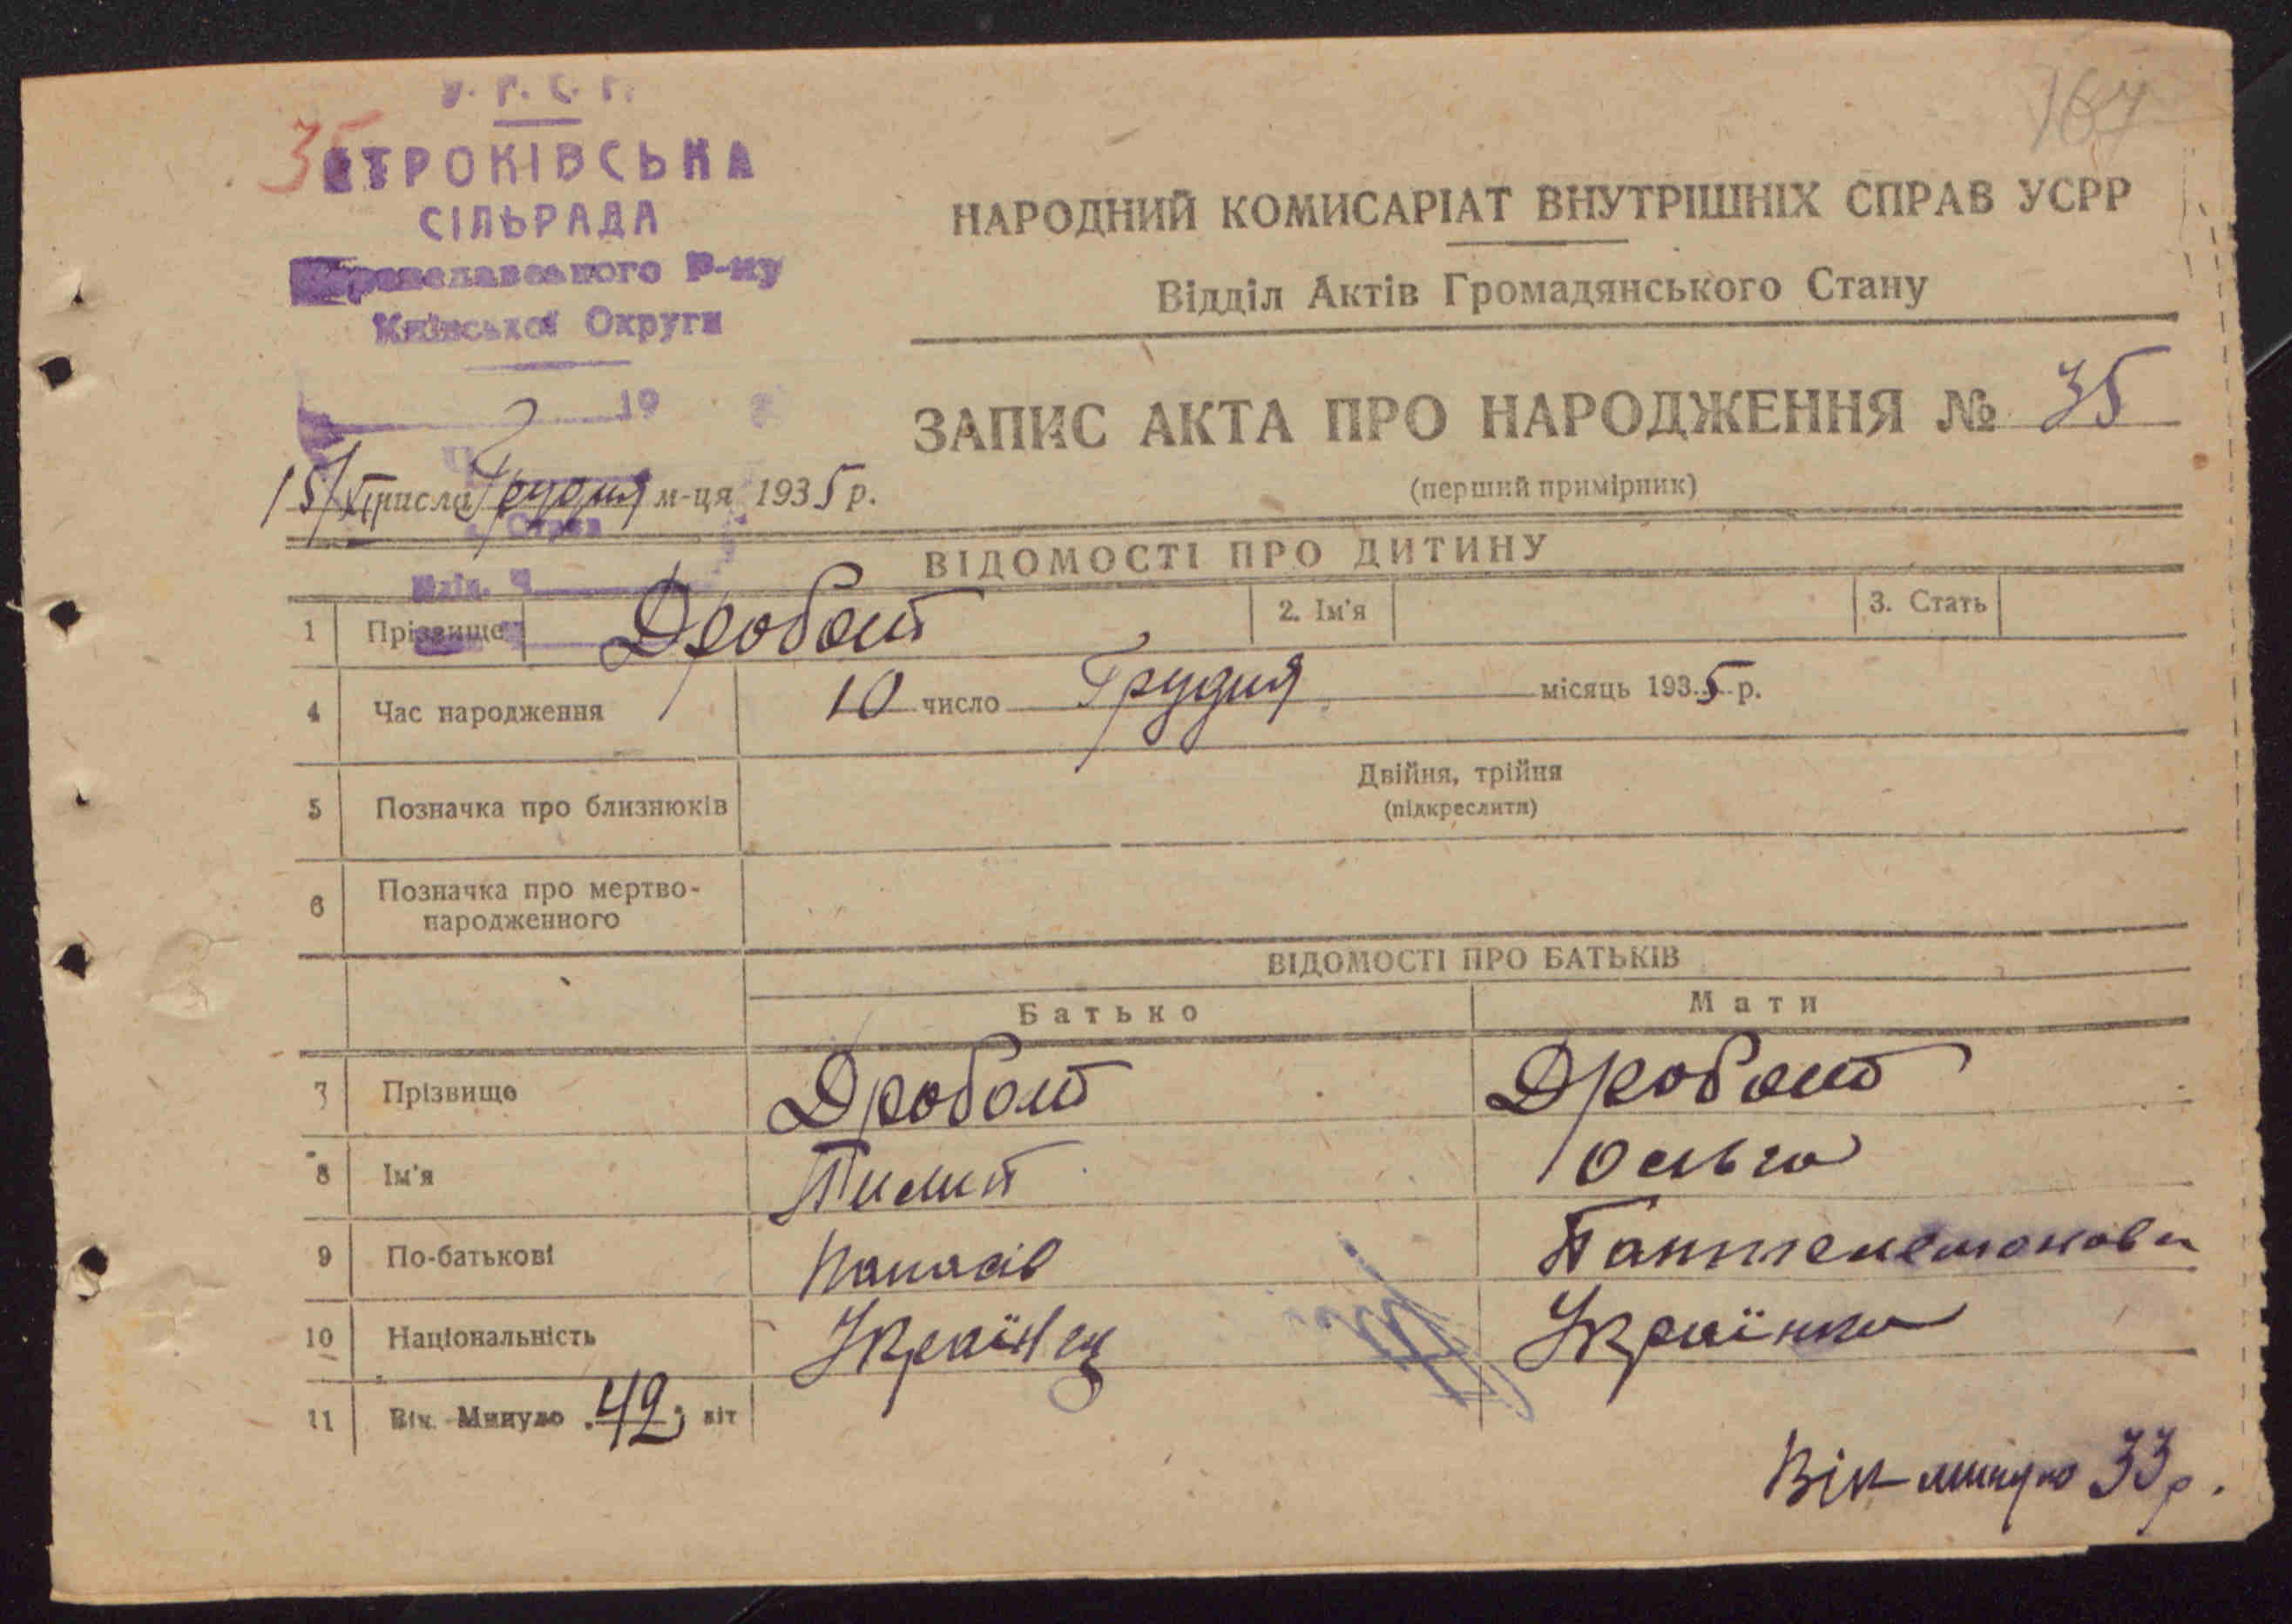 У. Р. С. Р.
СТРОКІВСЬКА
СІЛЬРАДА
Переяславського Р-ну
Київської Округи
19
35
167
НАРОДНИЙ КОМИСАРІАТ ВНУТРІШНІХ СПРАВ УСРР
Відділ Актів Громадянського Стану
ЗАПИС АКТА ПРО НАРОДЖЕННЯ № 35
(перший примірник)
15/XII числа Грудня м-ця 1935 р.
ВІДОМОСТІ ПРО ДИТИНУ
1 Прізвище Дробот 2. Ім'я 3. Стать
4 Час народження 10 число Грудня місяць 1935 р.
5 Позначка про близнюків Двійня, трійня
(підкреслити)
6 Позначка про мертво-
народженного
ВІДОМОСТІ ПРО БАТЬКІВ
Батько Мати
7 Прізвище Дробот Дробот
8 Ім'я Пилип Ольга
9 По-батькові Панасів Пантелемонов
10 Національність Українец Українка
11 Вік. Минуло 42 літ
Вік минуло 33 р.